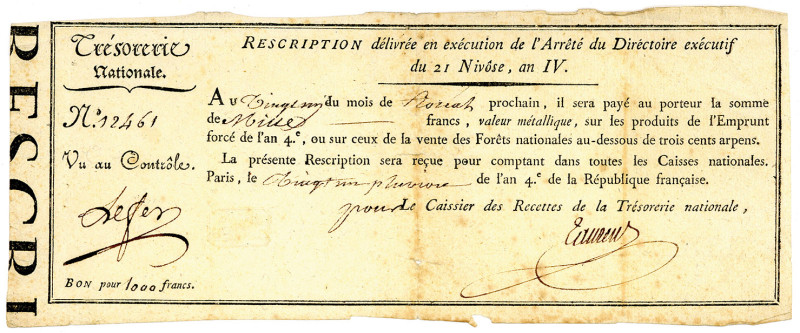 RESCRI
Trésorerie
Nationale.
N.º 12461
Vu au Contrôle.
BON pour 1000 francs.
RESCRIPTION délivrée en exécution de l'Arrêté du Diréctoire exécutif
du 21 Nivôse, an IV.
AU Vingt un du mois de floréal prochain, il sera payé au porteur la somme
de Mille francs, valeur métallique, sur les produits de l'Emprunt
forcé de l'an 4.e, ou sur ceux de la vente des Forêts nationales au-dessous de trois cents arpens.
La présente Rescription sera reçue pour comptant dans toutes les Caisses nationales.
Paris, le Vingt un pluviose de l'an 4.e de la République française.
pour Le Caissier des Recettes de la Trésorerie nationale,